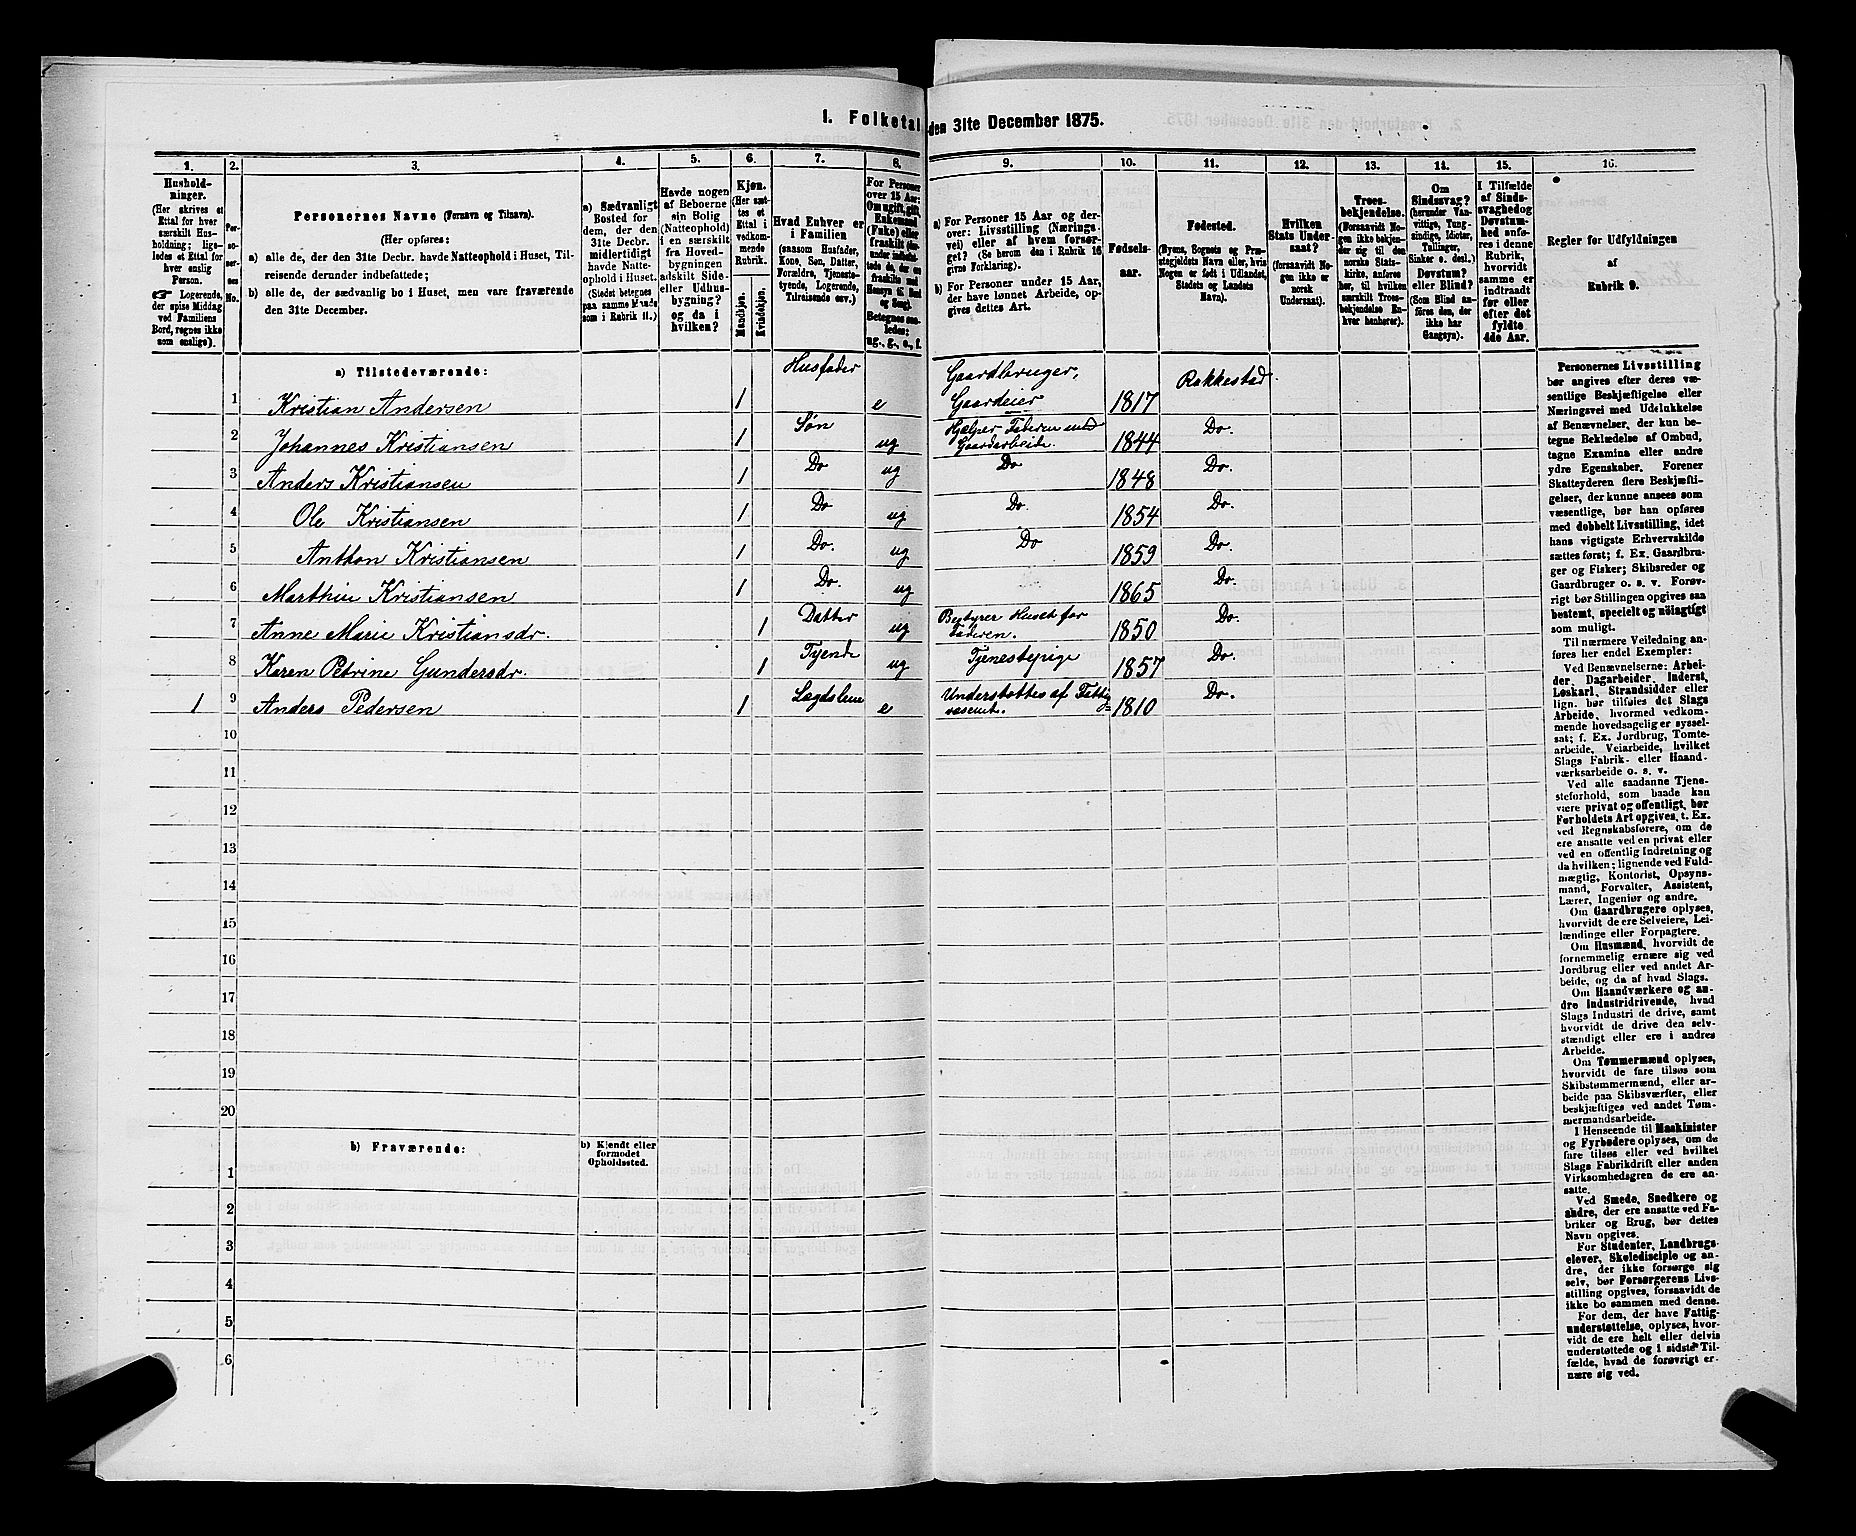 1. Folketal
den 31te December 1875.
1. 2. 3. 4. 5. 6. 7. 8. 9. 10. 11. 12. 13. 14. 15. 16.
Hushold-
ninger.
(Her skrives et
Ettal for hver
særskilt Hus-
holdning; lige-
ledes et Ettal for
hver enslig
Person.
☞ Logerende,
der spise Middag
ved Familiens
Bord, regnes ikke
som enslige).
Per-
so-
ner-
nes
No.
Personernes Navne (Fornavn og Tilnavn).
(Her opføres:
a) alle de, der den 31te Decbr. havde Natteophold i Huset, Til-
reisende derunder indbefattede;
b) alle de, der sædvanlig bo i Huset, men vare fraværende
den 31te December.
a) Sædvanligt
Bosted for
dem, der den
31te Decbr.
midlertidigt
havde Natte-
ophold i Huset.
(Stedet betegnes
paa samme Maade
som i Rubrik 11.)
Havde nogen
af Beboerne
sin Bolig
(Natteophold)
i en særskilt
fra Hoved-
bygningen
adskilt Side-
eller Udhus-
bygning?
og da i
hvilken?
Kjøn.
(Her sæt-
tes et
Ettal i
vedkom-
mende
Rubrik.
Mandkjøn.
Kvindekjøn.
Hvad Enhver er
i Familien
(saasom Husfader,
Kone, Søn, Datter,
Forældre, Tjeneste-
tyende, Logerende,
Tilreisende osv.)
For Personer
over 15 Aar:
Om ugift, gift,
Enkemand
(Enke) eller
fraskilt
Betegnes saa-
ledes:
ug., g., e., f.
a) For Personer 15 Aar og der-
over: Livsstilling (Nærings-
vei) eller af hvem forsør-
get? (Se herom den i Rubrik 16
givne Forklaring).
b) For Personer under 15 Aar,
der have lønnet Arbeide, op-
gives dettes Art.
Fødsels-
aar.
Fødested.
(Byens, Sognets og Præ-
stegjeldets Navn eller, hvis
Nogen er født i Udlandet,
Stedets og Landets
Navn).
Hvilken
Stats Under-
saat?
(forsaavidt No-
gen ikke er
norsk
Undersaat).
Troes-
bekjendelse.
(Forsaavidt No-
gen ikke bekjen-
der sig til den
norske Stats-
kirke, anføres
her, til hvilken
særskilt Troes-
bekjendelse En-
hver henhører).
Om
Sindssvag?
(herunder Van-
vittige, Tung-
sindige, Idioter,
Tullinger,
Sinker o. desl.)
Døvstum?
eller Blind?
(Som Blind an-
føres den, der
ikke har
Gangsyn).
I Tilfælde
af Sinds-
svaghed og
Døvstum-
hed anfø-
res i denne
Rubrik,
hvorvidt
samme er
indtraadt
før eller
efter det
fyldte
4de Aar.
Regler for Udfyldningen
af
Rubrik 9.
a) Tilstedeværende:
1 Kristian Andersen 1 Husfader e Gaardbruger, Gaardeier 1817 Rakkestad
2 Johannes Kristiansen 1 Søn ug Hjælper Faderen med Gaardarbeide 1844 Do.
3 Anders Kristiansen 1 Do ug Do 1848 Do.
4 Ole Kristiansen 1 Do ug Do. 1854 Do.
5 Anthon Kristiansen 1 Do. ug Do 1859 Do.
6 Marthin Kristiansen 1 Do. ug 1865 Do.
7 Anne Marie Kristiansdr. 1 Datter ug Bestyrer Huset for Faderen. 1850 Do.
8 Karen Petrine Gundersdr. 1 Tyende ug Tjenestepige 1857 Do.
1 9 Anders Pedersen 1 Lægdslem e Understøttes af Fattig= væsenet. 1810 Do.
10
11
12
13
14
15
16
17
18
19
20
b) Fraværende:
b) Kjendt eller
formodet
Opholdssted.
1
2
3
4
5
6
Personernes Livsstilling
bør angives efter deres væ-
sentlige Beskjæftigelse eller
Næringsvei med Udelukkelse
af Benævnelser, der kun be-
tegne Beklædelse af Ombud,
tagne Examina eller andre
ydre Egenskaber. Forener
Skatteyderen flere Beskjæfti-
gelser, der kunne ansees som
væsentlige, bør han opføres
med dobbelt Livsstilling, idet
hans vigtigste Erhvervskilde
sættes først; f. Ex. Gaardbru-
ger og Fisker; Skibsreder og
Gaardbruger o. s. v. Forøv-
rigt bør Stillingen opgives saa
bestemt, specielt og nøiagtigt
som muligt.
Til nærmere Veiledning an-
føres her endel Exempler:
Ved Benævnelserne: Arbei-
der, Dagarbeider, Inderst,
Løskarl, Strandsidder eller
lign. bør tilføies det Slags
Arbeide, hvormed vedkom-
mende hovedsagelig er syssel-
sat; f. Ex. Jordbrug, Tomte-
arbeide, Veiarbeide, hvilket
Slags Fabrik- eller Haand-
værksarbeide o. s. v.
Ved alle saadanne Tjene-
steforhold, som baade kan
være privat og offentligt, bør
Forholdets Art opgives, t. Ex.
ved Regnskabsførere, om de
ere ansatte ved en privat eller
ved en offentlig Indretning og
da hvilken; lignende ved Fuld-
mægtig, Kontorist, Opsyns-
mand, Forvalter, Assistent,
Lærer, Ingeniør og andre.
Om Gaardbrugere oplyses,
hvorvidt de ere Selveiere, Lei-
lændinge eller Forpagtere.
Om Husmænd, hvorvidt de
fornemmelig ernære sig ved
Jordbrug eller ved andet Ar-
beide, og da af hvad Slags.
Om Haandværkere og an-
dre Industridrivende, hvad
Slags Industri de drive, samt
hvorvidt de drive den selv-
stændigt eller ere i andres
Arbeide.
Om Tømmermænd oplyses,
hvorvidt de fare tilsøs som
Skibstømmermænd, eller ar-
beide paa Skibsværfter, eller
beskjæftiges ved andet Tøm-
mermandsarbeide.
I Henseende til Maskinister
og Fyrbødere oplyses, om de
fare tilsøs eller ved hvilket
Slags Fabrikdrift eller anden
Virksomhedsgren de ere an-
satte.
Ved Smede, Snedkere og
andre, der ere ansatte ved Fa-
briker og Brug, bør dettes
Navn opgives.
For Studenter, Landbrugs-
elever, Skoledisciple og an-
dre, der ikke forsørge sig
selv, bør Forsørgerens Livs-
stilling opgives, forsaavidt de
ikke bo sammen med denne.
For dem, der have Fattig-
understøttelse, oplyses, hvor-
vidt de ere helt eller delvis
understøttede og i sidste Til-
fælde, hvad de forøvrigt er-
nære sig ved.